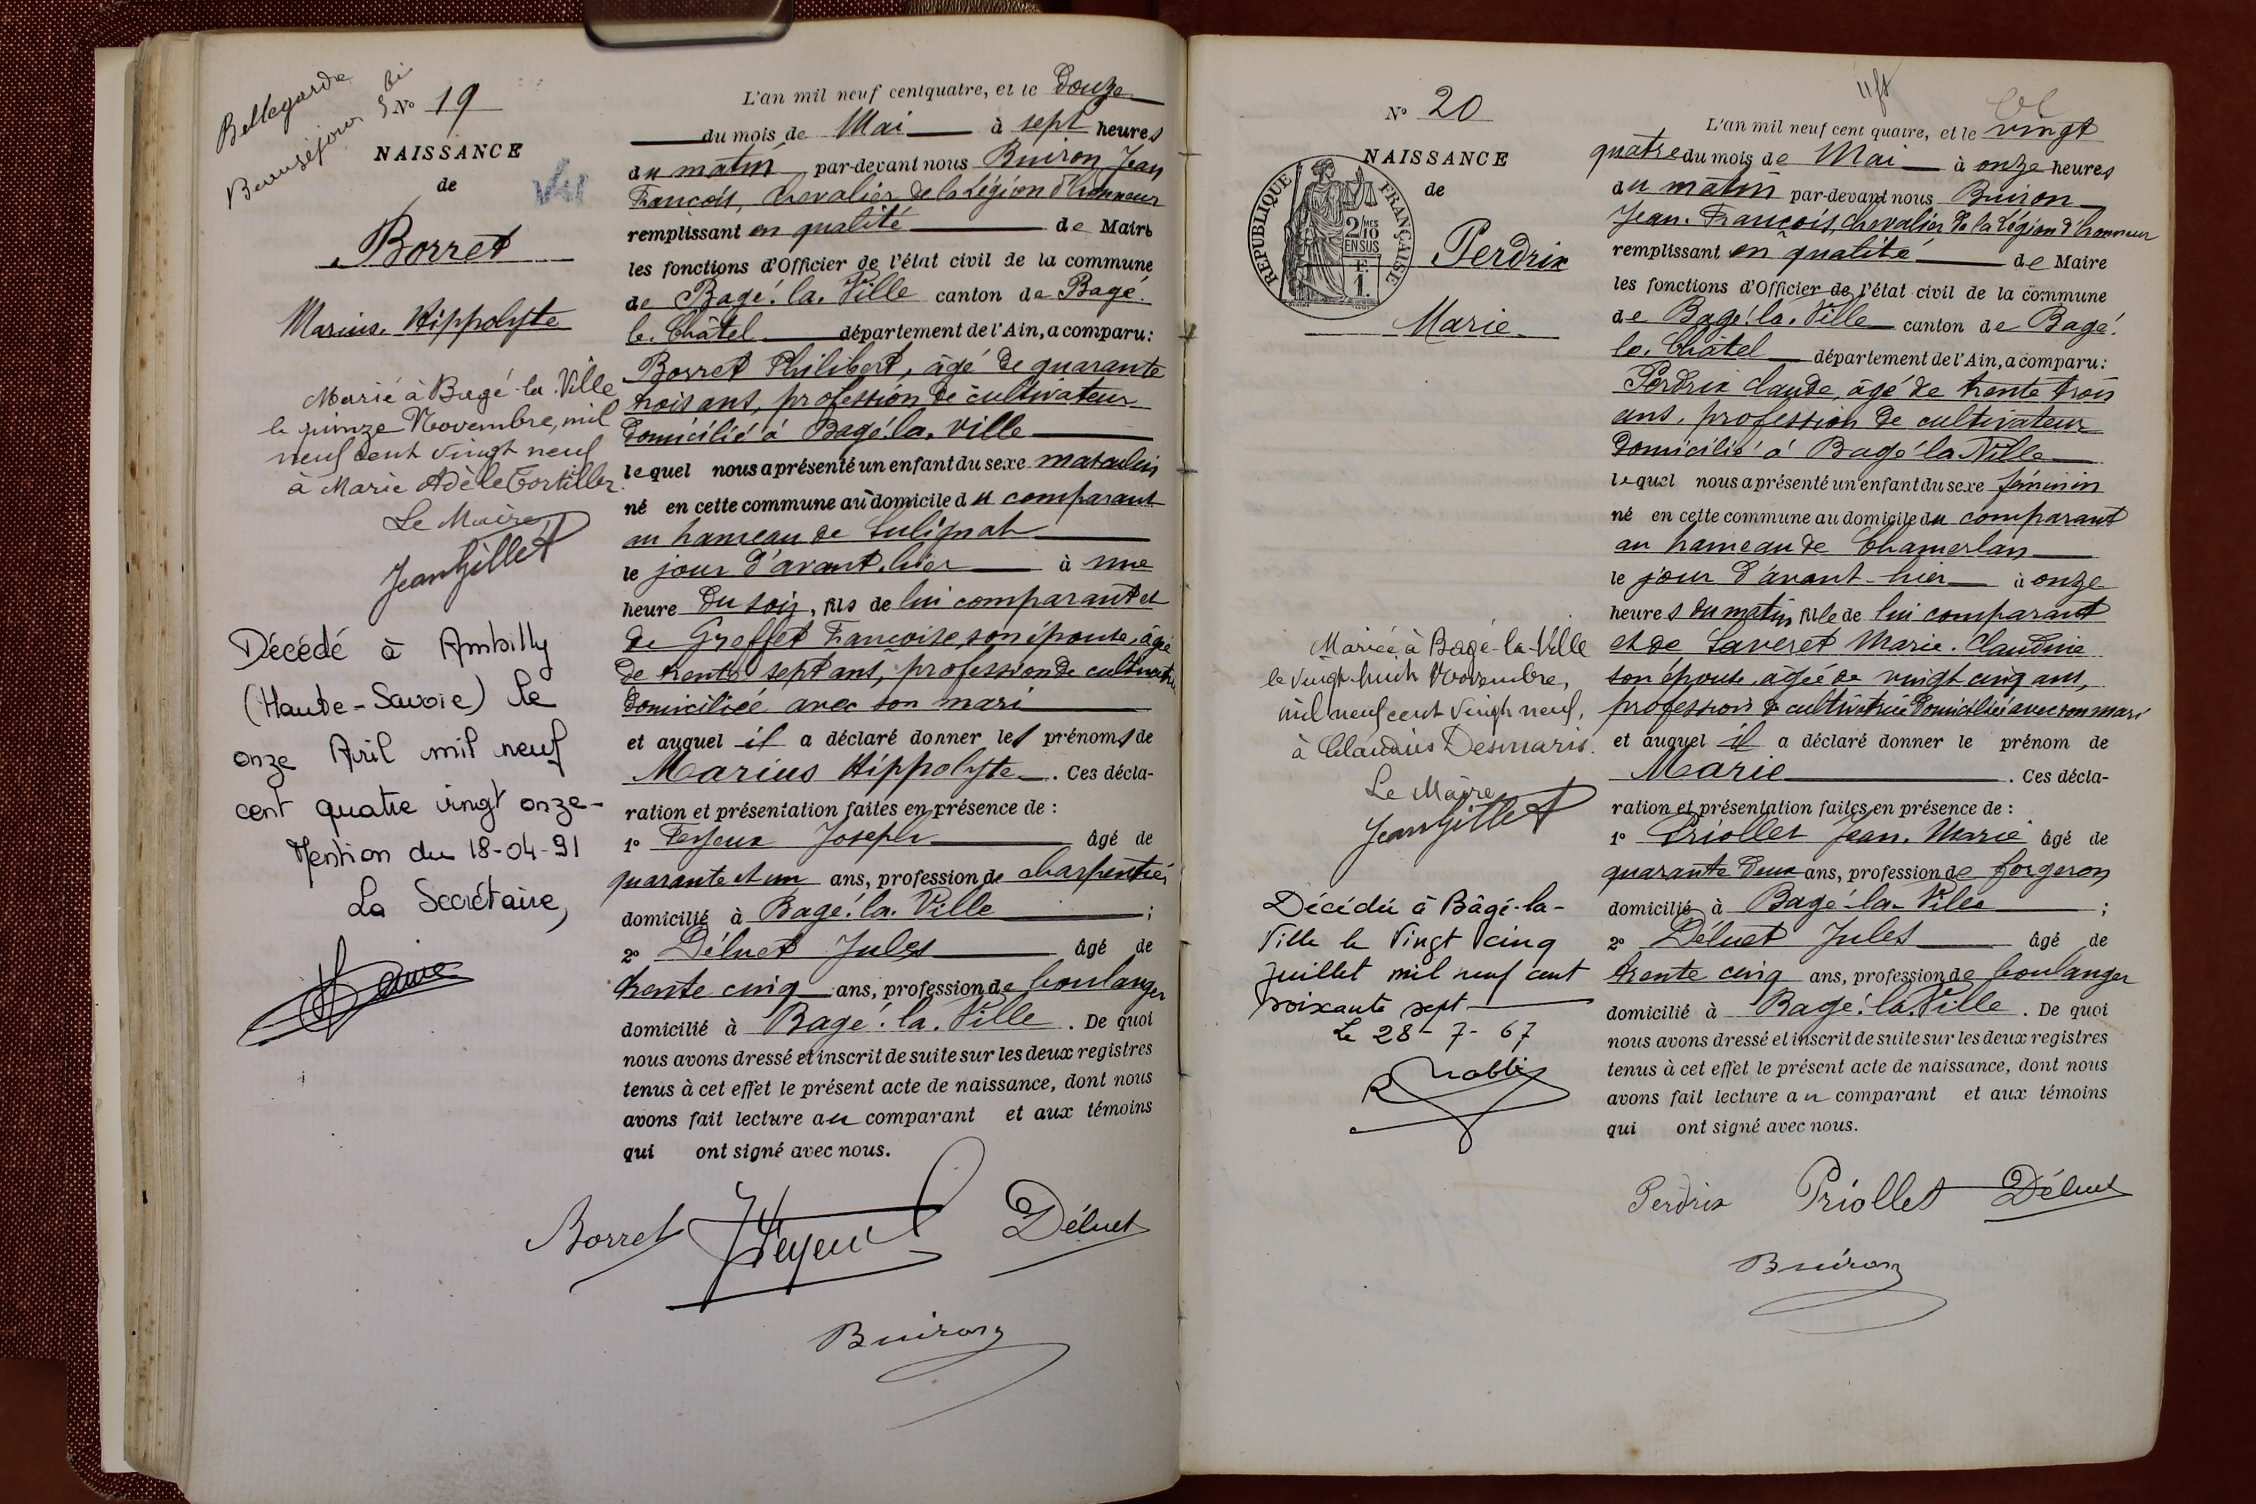 Bellegarde
Beauséjour
N° 19
NAISSANCE
de
Borret
Marius. Hippolyte
Marié à Bagé-la-Ville
le quinze Novembre, mil
neuf cent vingt neuf
à Marie Adèle Tortillet.
Le Maire
Jean Gillet
Décédé à Ambilly
(Haute-Savoie) le
onze Avril mil neuf
cent quatre vingt onze-
Mention du 18-04-91
La Secrétaire,
L'an mil neuf cent quatre, et le Douze
du mois de Mai à sept heures
du matin par-devant nous Buiron Jean
François, chevalier de la Légion d'honneur
remplissant en qualité de Maire
les fonctions d'Officier de l'état civil de la commune
de Bagé. la. Ville canton de Bagé.
le. Châtel département de l'Ain, a comparu:
Borret Philibert, âgé de quarante
trois ans, profession de cultivateur
domicilié à Bagé. la. Ville
lequel nous a présenté un enfant du sexe masculin
né en cette commune au domicile du comparant
au hameau de Lulignat
le jour d'avant. hier à une
heure du soir, fils de lui comparant et
de Greffet Françoise, son épouse, âgée
de trente sept ans, profession de cultivatrice
domiciliée avec son mari
et auquel il a déclaré donner les prénoms de
Marius Hippolyte. Ces décla-
ration et présentation faites en présence de :
1° Feyeux Joseph âgé de
quarante et un ans, profession de charpentier
domicilié à Bagé. la. Ville ;
2° Déluet Jules âgé de
trente cinq ans, profession de boulanger
domicilié à Bagé. la. Ville. De quoi
nous avons dressé et inscrit de suite sur les deux registres
tenus à cet effet le présent acte de naissance, dont nous
avons fait lecture au comparant et aux témoins
qui ont signé avec nous.
Borret Déluet
Buiron
N° 20
NAISSANCE
de
RÉPUBLIQUE FRANÇAISE
2/10 MES
EN SUS
F.
1.
Perdrix
Marie
Mariée à Bagé-la-Ville
le vingt-huit Novembre,
mil neuf cent vingt neuf,
à Claudius Desmaris.
Le Maire
Jean Gillet
Décédée à Bâgé-la-
Ville le vingt cinq
juillet mil neuf cent
soixante sept
Le 28-7-67
L'an mil neuf cent quatre, et le vingt
quatre du mois de Mai à onze heures
du matin par-devant nous Buiron
Jean. François, chevalier de la Légion d'honneur
remplissant en qualité de Maire
les fonctions d'Officier de l'état civil de la commune
de Bagé. la. Ville canton de Bagé.
le. Châtel département de l'Ain, a comparu:
Perdrix Claude, âgé de trente trois
ans, profession de cultivateur
domicilié à Bagé la Ville
lequel nous a présenté un enfant du sexe féminin
né en cette commune au domicile du comparant
au hameau de Chamerlan
le jour d'avant-hier à onze
heures du matin, fille de lui comparant
et de Laveret Marie. Claudine
son épouse âgée de vingt cinq ans,
profession de cultivatrice domiciliée avec son mari
et auquel il a déclaré donner le prénom de
Marie. Ces décla-
ration et présentation faites en présence de :
1° Priollet Jean. Marie âgé de
quarante deux ans, profession de forgeron
domicilié à Bagé-la-Ville ;
2° Déluet Jules âgé de
trente cinq ans, profession de boulanger
domicilié à Bagé. la. Ville. De quoi
nous avons dressé et inscrit de suite sur les deux registres
tenus à cet effet le présent acte de naissance, dont nous
avons fait lecture au comparant et aux témoins
qui ont signé avec nous.
Perdrix Priollet Déluet
Buiron